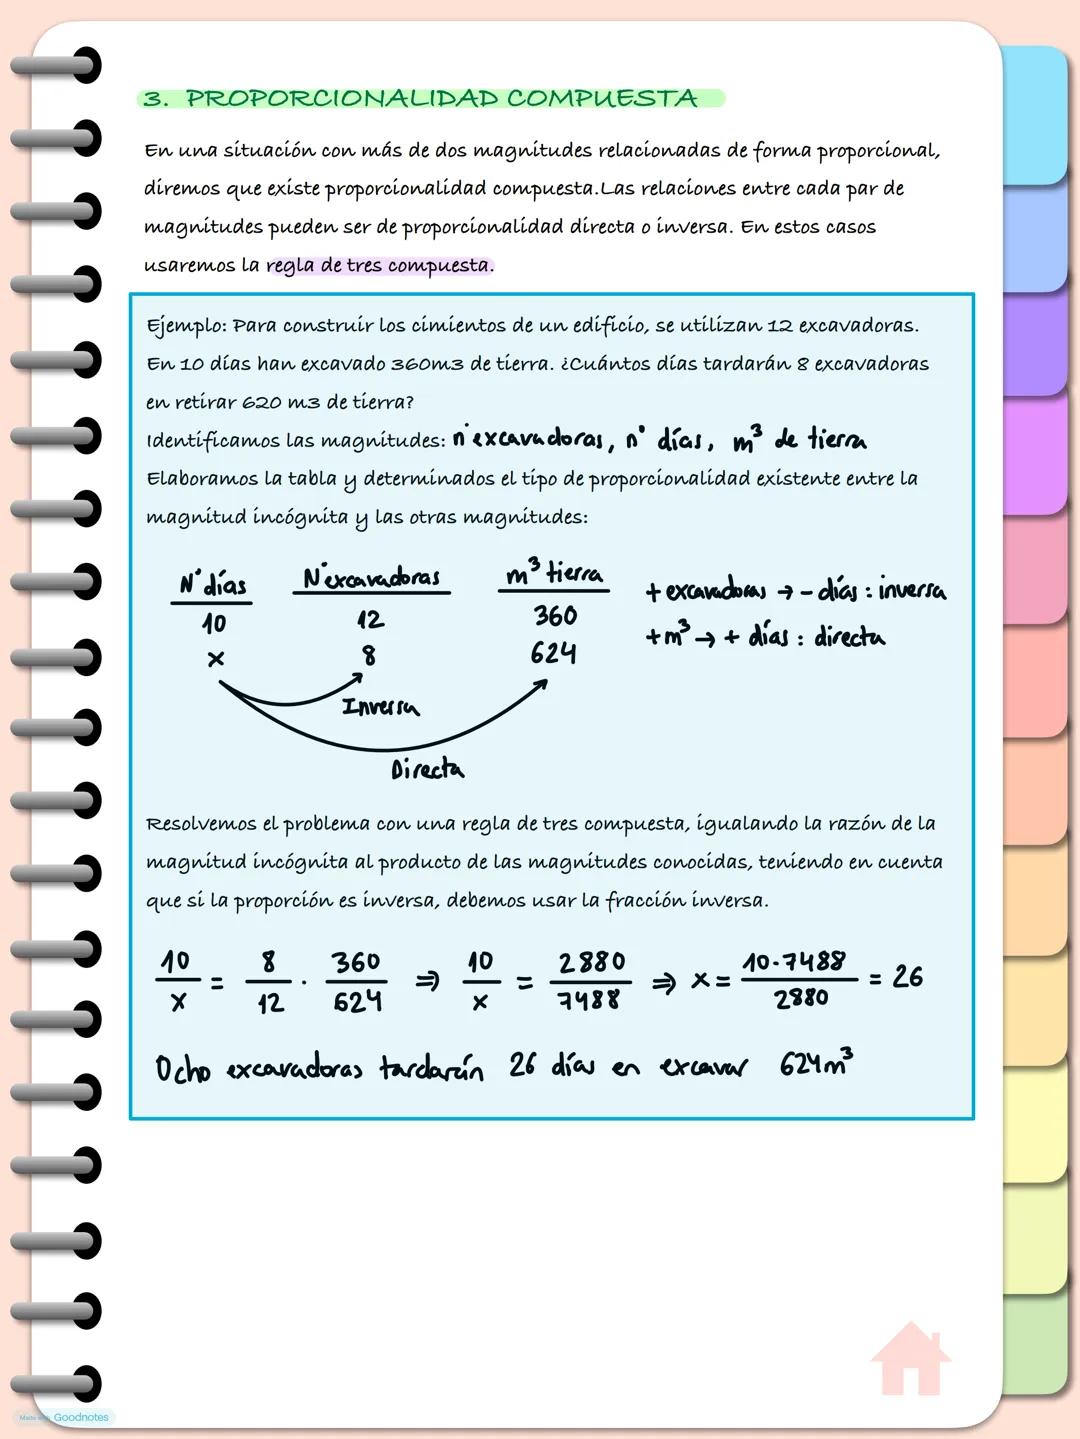 3. PROPORCIONALIDAD COMPUESTA
En una situación con más de dos magnitudes relacionadas de forma proporcional,
diremos que existe proporcionalidad compuesta.Las relaciones entre cada par de
magnitudes pueden ser de proporcionalidad directa o inversa. En estos casos
usaremos la regla de tres compuesta.
Ejemplo: Para construir los cimientos de un edificio, se utilizan 12 excavadoras.
En 10 días han excavado 360m3 de tierra. ¿Cuántos días tardarán 8 excavadoras
en retirar 620 m3 de tierra?
Identificamos las magnitudes: nº excavadoras, nº días, m³ de tierra
Elaboramos la tabla y determinados el tipo de proporcionalidad existente entre la
magnitud incógnita y las otras magnitudes:
Nº días Nº excavadoras m³ tierra
10 12 360
x 8 624
+ excavadoras → - días : inversa
+ m³ → + días : directa
Inversa
Directa
Resolvemos el problema con una regla de tres compuesta, igualando la razón de la
magnitud incógnita al producto de las magnitudes conocidas, teniendo en cuenta
que si la proporción es inversa, debemos usar la fracción inversa.
10/x = 8/12 · 360/624 ⇒ 10/x = 2880/7488 ⇒ x = 10·7488/2880 = 26
Ocho excavadoras tardarán 26 días en excavar 624m³
Made with Goodnotes